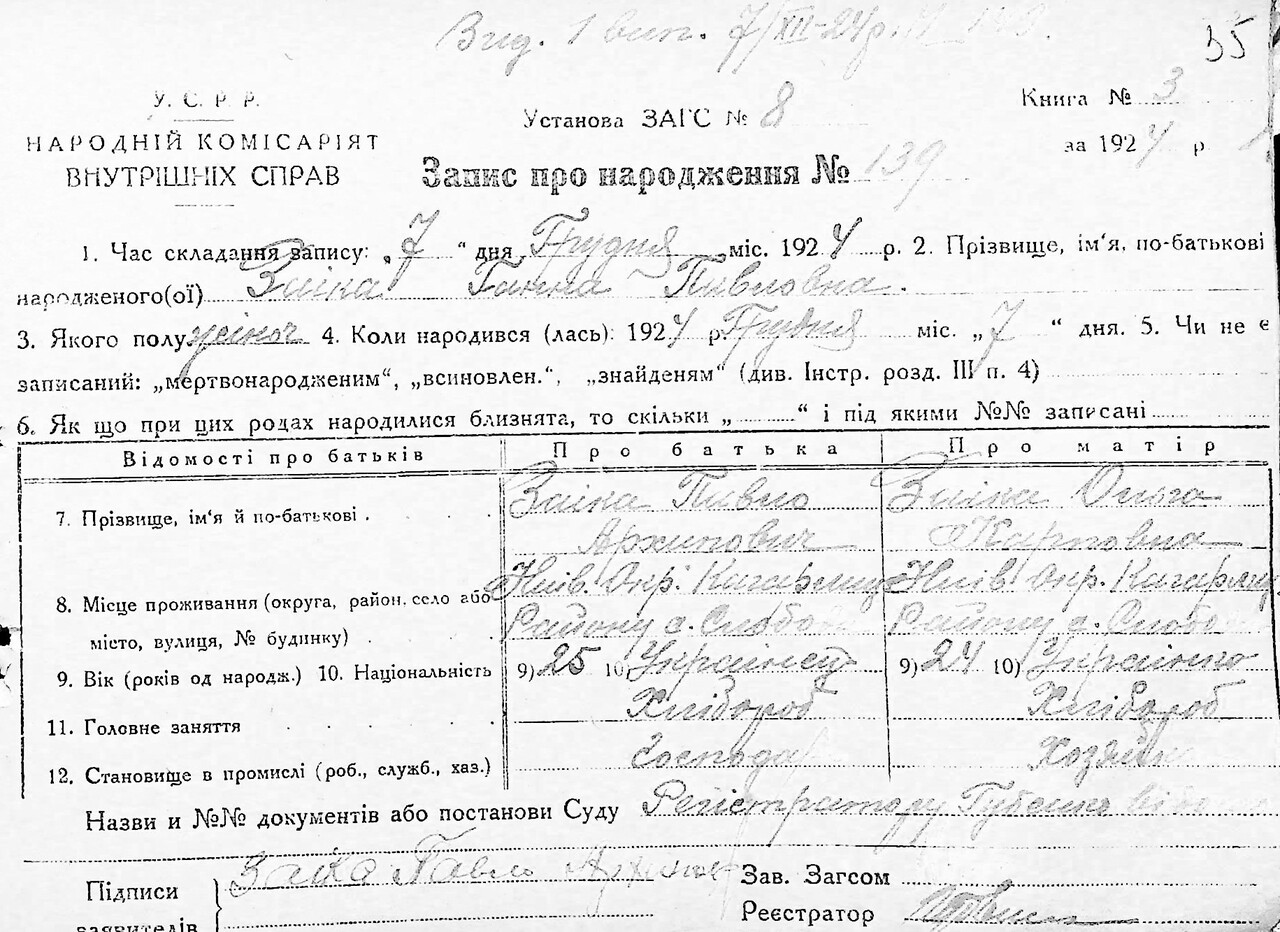 Вид. 1 вип. 7/XII-24 р.
35
У. С. Р. Р.
НАРОДНІЙ КОМІСАРІЯТ
ВНУТРІШНІХ СПРАВ
Установа ЗАГС № 8
Запис про народження № 139
Книга № 3
за 1924 р.
1. Час складання запису: „7“ дня Грудня міс. 1924 р. 2. Прізвище, ім'я, по-батькові
народженого(ої) Заїка Ганна Павловна.
3. Якого полу жіноч 4. Коли народився (лась): 1924 р. Грудня міс. „7“ дня. 5. Чи не є
записаний: „мертвонародженим“, „всиновлен.“, „знайденям“ (див. Інстр. розд. III п. 4)
6. Як що при цих родах народилися близнята, то скільки „ “ і під якими №№ записані
Відомості про батьків Про батька Про матір
7. Прізвище, ім'я й по-батькові . Заїка Павло Архипович Заїка Ольга Карповна
8. Місце проживання (округа, район, село або місто, вулиця, № будинку) . Київ. Окр. Кагарлиц Району с. Слобо Київ. Окр. Кагарлиц Району с. Слобо
9. Вік (років од народж.) 10. Національність 9) 25 10) Українець 9) 24 10) Українка
11. Головне заняття Хлібороб Хлібороб
12. Становище в промислі (роб., служб., хаз.) Господар Хозяйк
Назви и №№ документів або постанови Суду
Підписи
заявителів
Заїка Павло
Зав. Загсом
Реєстратор